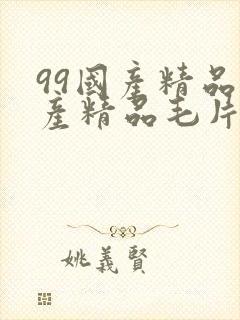 99國產精品
產精品毛片
姚義賢